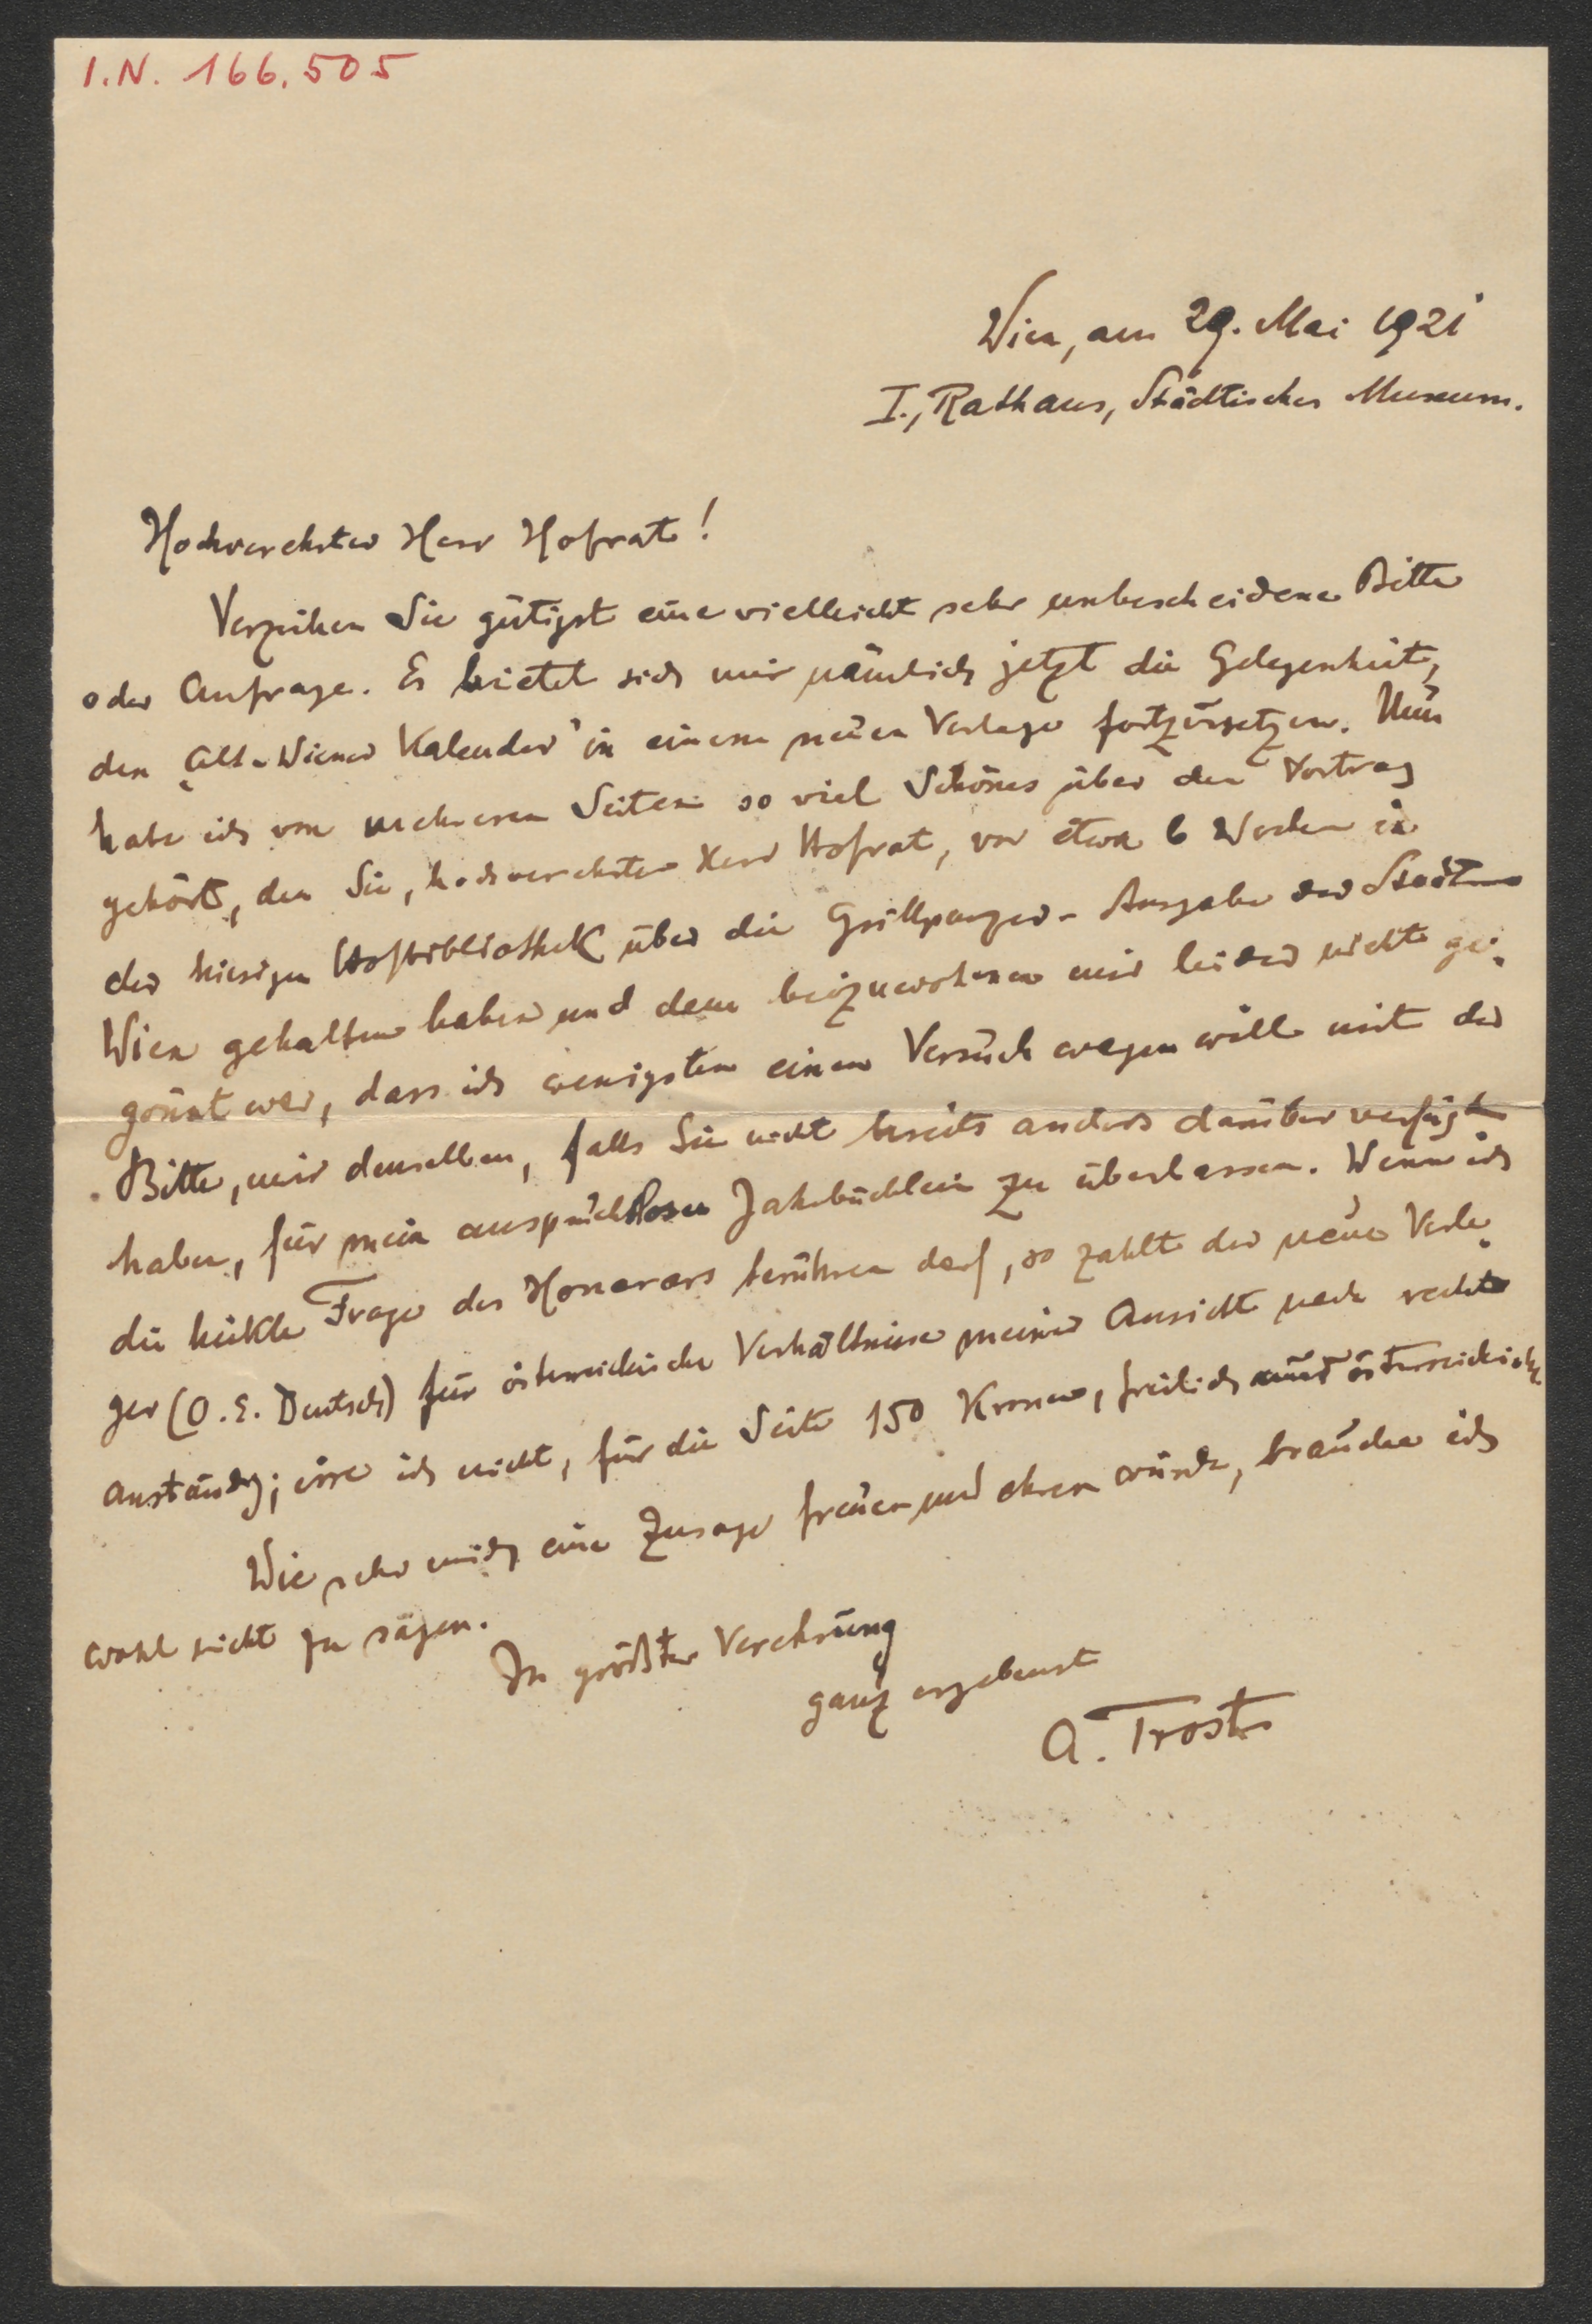 I.N. 166.505
Wien, am 29. Mai 1921
I., Rathaus, Städtisches Museum.
Hochverehrter Herr Hofrat!
Verzeihen Sie gütigst eine vielleicht sehr unbescheidene Bitte
oder Anfrage. Es bietet sich mir nämlich jetzt die Gelegenheit,
den „Alt-Wiener Kalender" in einem neuen Verlage fortzusetzen. Nun
habe ich von mehreren Seiten so viel Schönes über den Vortrag
gehört, den Sie, hochverehrter Herr Hofrat, vor etwa 6 Wochen in
der hiesigen Hofbibliothek über die Grillparzer-Ausgabe der Stadt
Wien gehalten haben und dem beizuwohnen mir leider nicht ge-
gönnt war, dass ich wenigstens einen Versuch wagen will mit der
Bitte, mir denselben, falls Sie nicht bereits anders darüber verfügt
haben, für mein anspruchsloses Jahrbüchlein zu überlassen. Wenn ich
die heikle Frage des Honorars berühren darf, so zahlt der neue Verle-
ger (O. E. Deutsch) für österreichische Verhältnisse meiner Ansicht nach recht
anständig; irre ich nicht, für die Seite 150 Kronen, freilich nur österreichische.
Wie sehr mich eine Zusage freuen und ehren würde, brauche ich
wohl nicht zu sagen.
In größter Verehrung
ganz ergebenst
A. Trost